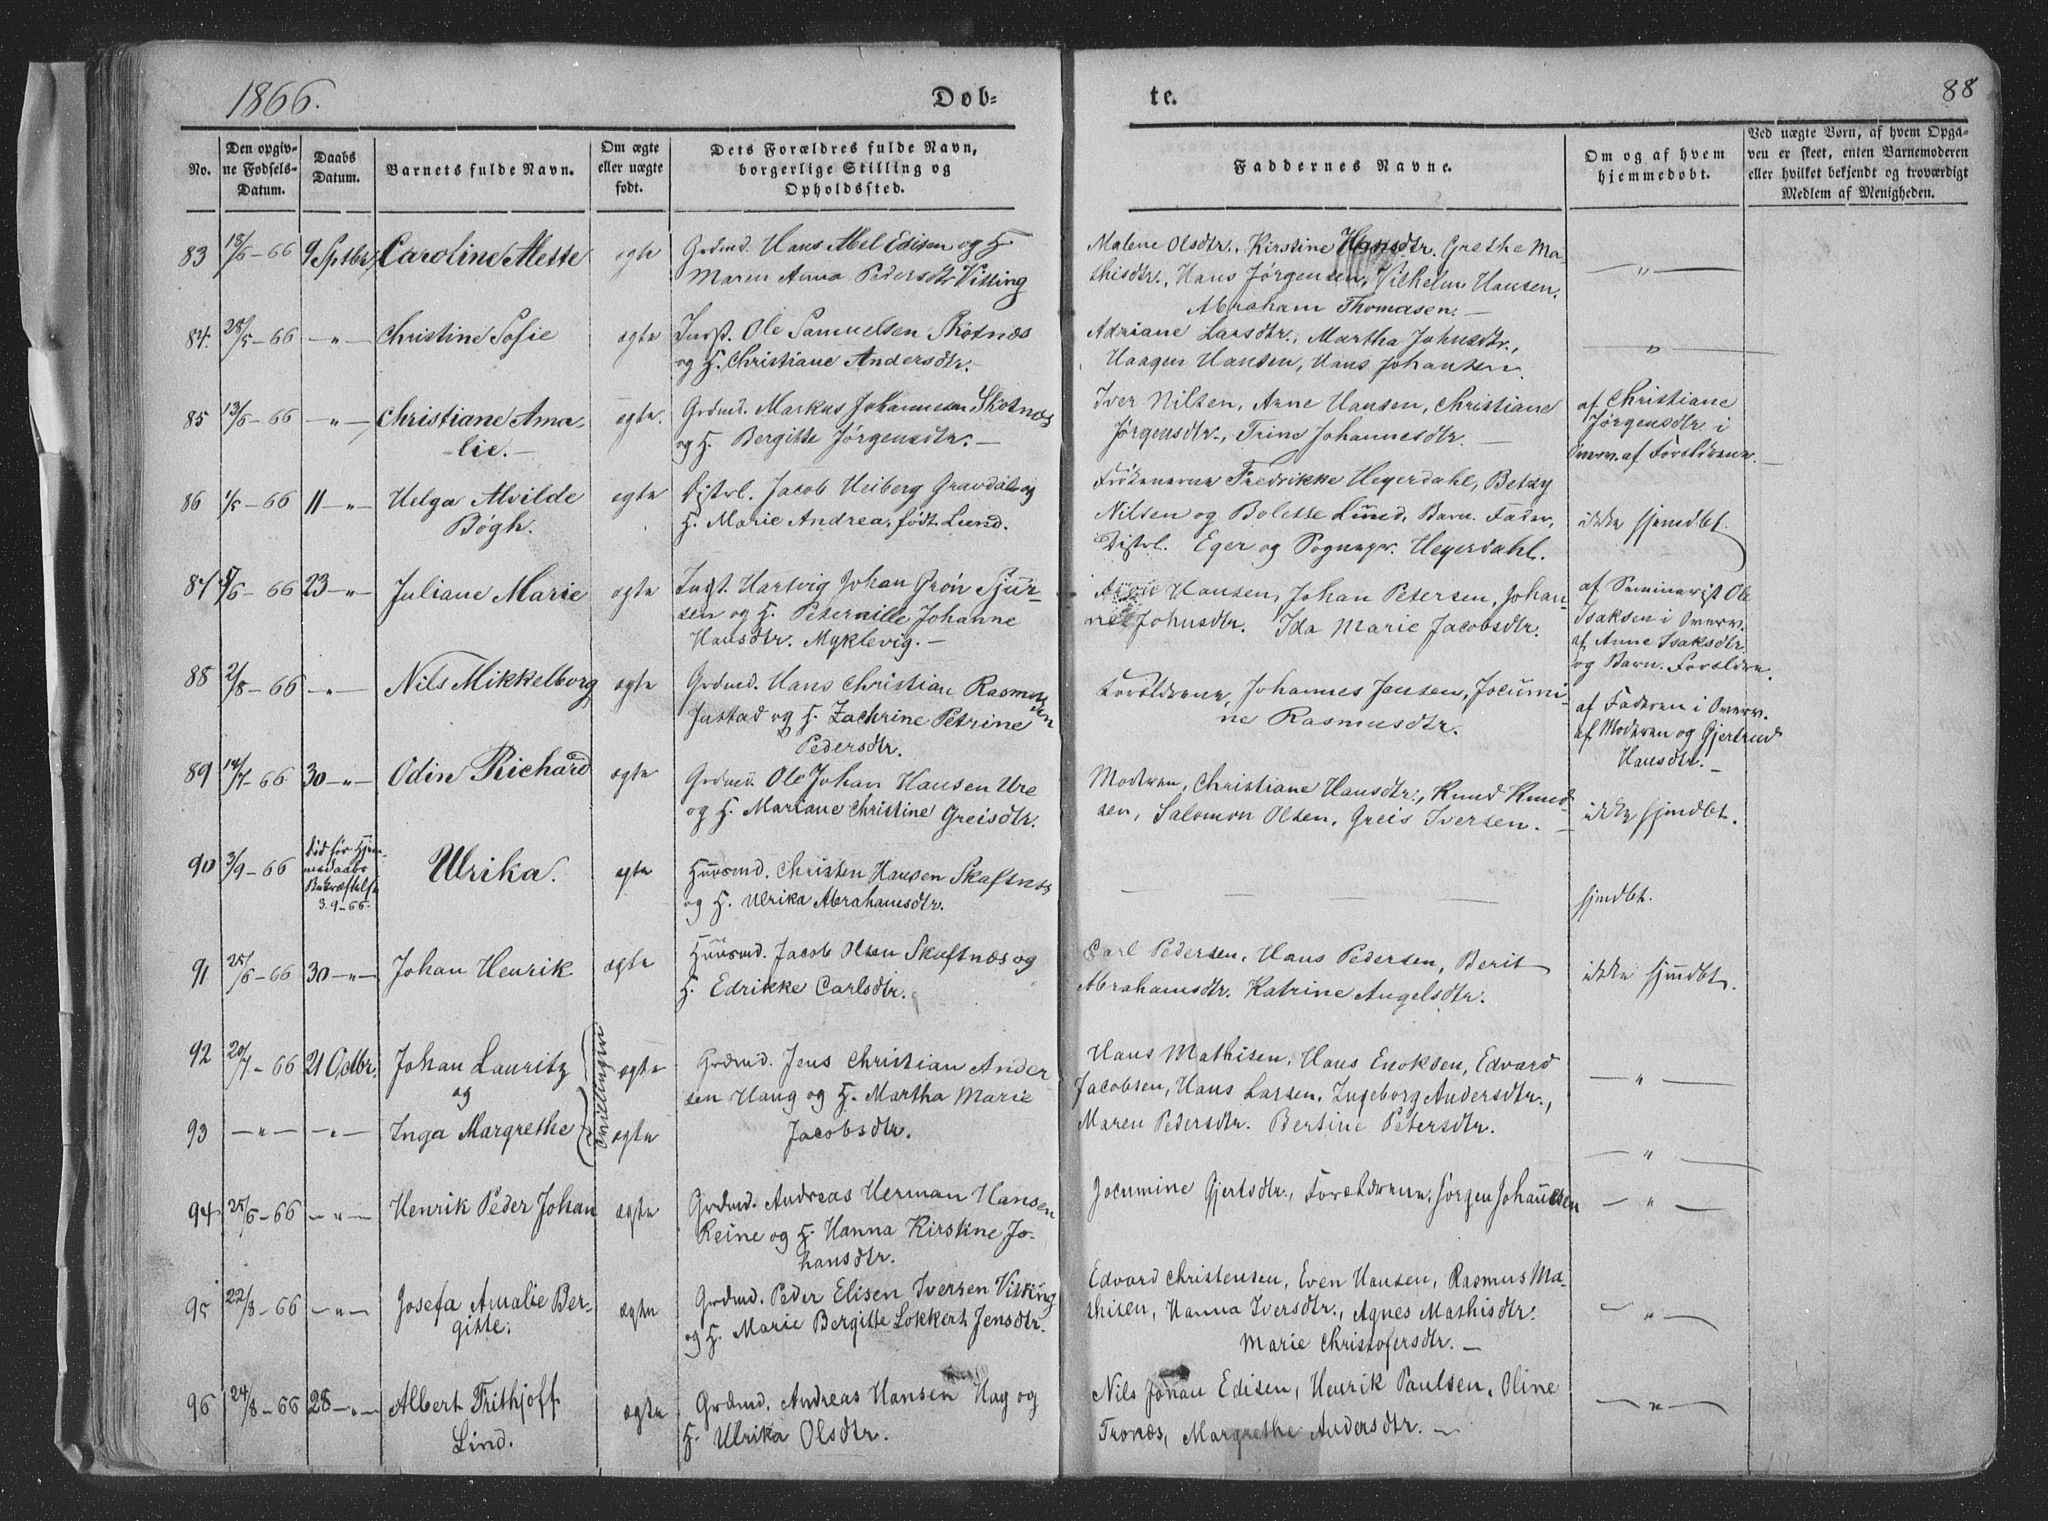 1866.
Døb-
te.
88
No.
Den opgiv-
ne Fødsels-
Datum.
Daabs
Datum.
Barnets fulde Navn.
Om ægte
eller uægte
født.
Dets Forældres fulde Navn,
borgerlige Stilling og
Opholdssted.
Faddernes Navne.
Om og af hvem
hjemmedøbt.
Ved uægte Børn, af hvem Opga-
ven er skeet, enten Barnemoderen
eller hvilket bekjendt og troværdigt
Medlem af Menigheden.
83 18/6-66 9 Sptbr Caroline Mette ægte
Grdmd. Hans Abel Edisen og H.
Maren Anna Pedersdtr Vitting
Malene Olsdtr., Kirstine Hansdtr. Grethe Ma-
thisdtr., Hans Jørgensen, Vilhelm Hansen.
Abraham Thomasen. —
— " —
84. 28/5-66 — " — Christine Sofie ægte
Indst. Ole Samuelsen Skotnæs
og H. Christiane Andersdtr. —
Adriane Larsdtr., Martha Johnsdtr.,
Haagen Hansen, Hans Johansen.
— " —
85 13/6-66 — " — Christiane Ama-
-lie. — ægte.
Grdmd. Markus Johannesen Skotnæs
og H. Bergitte Jørgensdtr. —
Iver Nilsen, Arne Hansen, Christiane
Jørgensdtr., Trine Johannesdtr. —
af Christiane
Jørgensdtr i
Overv. af Forældrene. —
86 1/5-66 11 — " — Helga Alvilde
Bøgh. ægte
Distrl. Jacob Heiberg Gravdal og
H. Marie Andrea, født Lund.
Frøknerne Fredrikke Heyerdahl, Betzy
Nilsen og Bolette Lund, Barn. Fader,
Distrl. Eger og Sognepr. Heyerdahl.
ikke hjemdbt.
87 17/6-66 23 — " — Juliane Marie ægte
Indst. Hartvig Johan Grøn Sjur-
sen og H. Peternille Johanne
Hansdtr. Myklevig. —
Arne Hansen, Johan Petersen, Johan-
ne Johnsdtr. Ida Marie Jacobsdtr.
af Seminarist Ole
Isaksen i Overv.
af Anne Isaksdtr
og Barn. Forældre.
88 2/8-66 — " — Nils Mikkelborg ægte
Grdmd. Hans Christian Rasmussen
Justad og H. Zachrine Petrine
Pedersdtr.
Forældrene, Johannes Jensen, Jocumi-
ne Rasmusdtr.
af Faderen i Overv.
af Moderen og Gjertrud
Hansdtr. —
89 14/7-66 30 — " — Odin Richard ægte
Grdmd. Ole Johan Hansen Ure
og H. Mariane Christine Greisdtr.
Moderen, Christiane Hansdtr., Knud Knud-
sen, Salomon Olsen, Greis Iversen. —
ikke hjmdbt.
90 3/9-66 død før Hjem-
medaabs
Bekræftelse
3.9-66. Ulrika. ægte
Huusmd. Christen Hansen Skaftnæs
og H. Ulrika Abrahamsdtr.
— — —
hjmdbt.
91 25/6-66 30 — " — Johan Henrik ægte
Huusmd. Jacob Olsen Skaftnæs og
H. Edrikke Carlsdtr.
Carl Pedersen, Hans Pedersen, Berit
Abrahamsdtr. Katrine Angelsdtr.
ikke hjmdbt.
92 20/7-66 21 Octbr. Johan Lauritz ægte
og
Tvillinger.
Grdmd. Jens Christian Ander-
sen Haug og H. Martha Marie
Jacobsdtr.
Hans Mathisen, Hans Enoksen, Edvard
Jacobsen, Hans Larsen, Ingeborg Andersdtr.,
Maren Pedersdtr. Bertine Petersdtr.
— " —
93 — " — — " — Inga Margrethe ægte
— " —
94 25/6-66 — " — Henrik Peder Johan ægte
Grdmd. Andreas Herman Hansen
Reine og H. Hanna Kirstine Jo-
hansdtr.
Jocumine Gjertsdtr., Forældrene, Jørgen Johannesen
— " —
95 22/8-66 — " — Josefa Amalie Ber-
gitte. ægte
Grdmd. Peder Elisen Iversen Vitting
og H. Marie Bergitte Lokkert Jensdtr.
Edvard Christensen, Even Hansen, Rasmus Ma-
thisen, Hanna Iversdtr., Agnes Mathisdtr.
Marie Christofersdtr. —
— " —
96 24/8-66 28 — " — Albert Frithjoff
Lind. ægte
Grdmd. Andreas Hansen Hag og
H. Ulrika Olsdtr.
Nils Johan Edisen, Henrik Paulsen, Oline
Tronæs, Margrethe Andersdtr. —
— " —